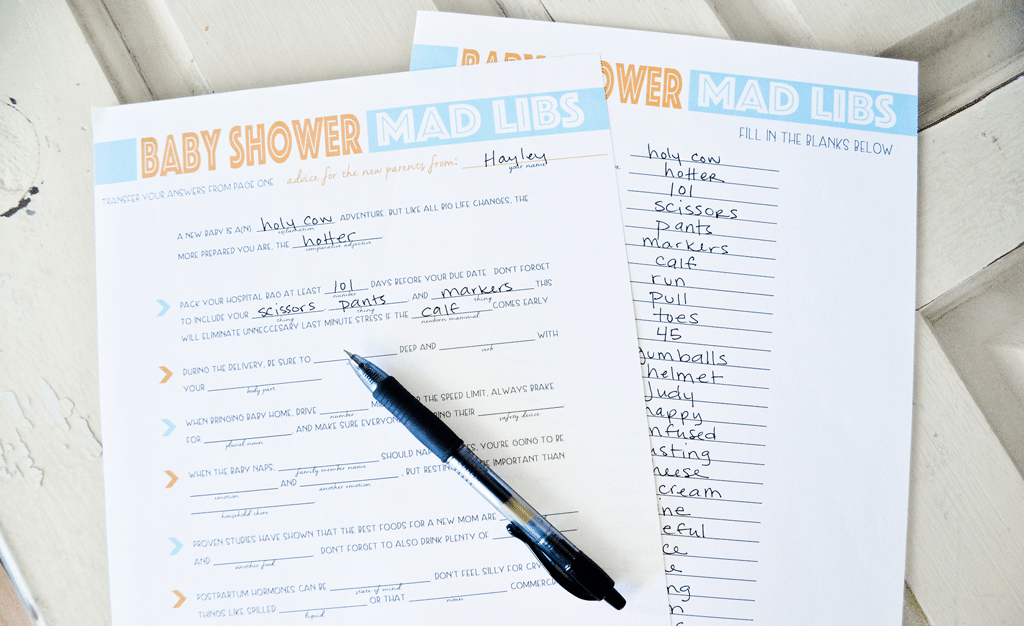 BABY SHOWER MAD LIBS
TRANSFER YOUR ANSWERS FROM PAGE ONE advice for the new parents from: Hayley
your name
A NEW BABY IS A(N) holy cow ADVENTURE. BUT LIKE ALL BIG LIFE CHANGES, THE
exclamation
MORE PREPARED YOU ARE, THE hotter
comparative adjective
PACK YOUR HOSPITAL BAG AT LEAST 101 DAYS BEFORE YOUR DUE DATE. DON'T FORGET
number
TO INCLUDE YOUR scissors pants AND markers THIS
thing thing thing
WILL ELIMINATE UNNECCESARY LAST MINUTE STRESS IF THE calf COMES EARLY
newborn mammal
DURING THE DELIVERY, BE SURE TO DEEP AND WITH
verb
YOUR
body part
WHEN BRINGING BABY HOME, DRIVE THE SPEED LIMIT, ALWAYS BRAKE
number
FOR AND MAKE SURE THEIR
plural noun safety device
WHEN THE BABY NAPS, SHOULD YOU'RE GOING TO BE
family member name
AND , BUT IMPORTANT THAN
emotion another emotion
household chore
PROVEN STUDIES HAVE SHOWN THAT THE BEST FOODS FOR A NEW MOM ARE
AND DON'T FORGET TO ALSO DRINK PLENTY OF
another food
POSTPARTUM HORMONES CAN BE DON'T FEEL SILLY FOR
state of mind
THINGS LIKE SPILLED OR THAT
liquid noun
BABY SHOWER MAD LIBS
FILL IN THE BLANKS BELOW
holy cow
hotter
101
scissors
pants
markers
calf
run
pull
toes
45
gumballs
helmet
Judy
happy